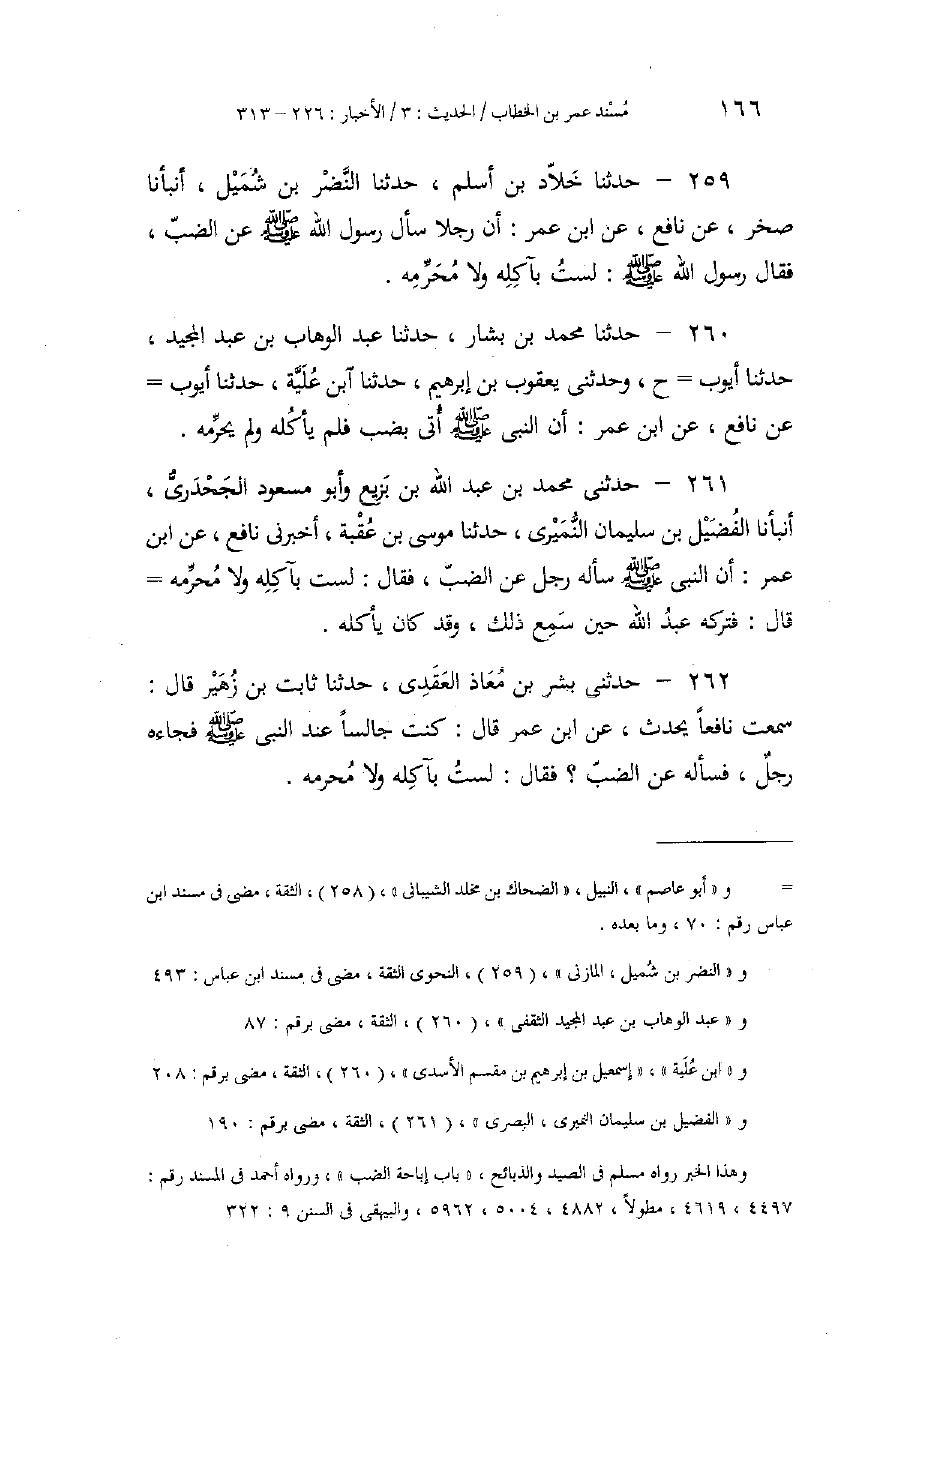 ١٦٦ مُسْند عمر بن الخطاب / الحديث : ٣ / الأخبار : ٢٢٦ – ٣١٣
٢٥٩ – حدثنا خَلاَّد بن أسلم ، حدثنا النَّضْر بن شُمَيْل ، أنبأنا
صخر ، عن نافع ، عن ابن عمر : أن رجلا سأل رسول الله ﷺ عن الضبّ ،
فقال رسول الله ﷺ : لستُ بآكِلِه ولا مُحَرِّمِه .
٢٦٠ – حدثنا محمد بن بشار ، حدثنا عبد الوهاب بن عبد المجيد ،
حدثنا أيوب = ح ، وحدثنى يعقوب بن إبرهيم ، حدثنا آبن عُلَيَّة ، حدثنا أيوب =
عن نافع ، عن ابن عمر : أن النبى ﷺ أُتى بضب فلم يأكُله ولم يحرِّمه .
٢٦١ – حدثنى محمد بن عبد الله بن بَزِيع وأبو مسعود الجَحْدَرىُّ ،
أنبأنا الفُضَيْل بن سليمان النُّمَيْرى ، حدثنا موسى بن عُقْبة ، أخبرنى نافع ، عن ابن
عمر : أن النبى ﷺ سأله رجل عن الضبّ ، فقال : لست بآكِلِه ولا مُحرِّمه =
قال : فتركه عبدُ الله حين سَمِع ذلك ، وقد كان يأكله .
٢٦٢ – حدثنى بشر بن مُعَاذ العَقَدِى ، حدثنا ثابت بن زُهَيْر قال :
سمعت نافعاً يحدث ، عن ابن عمر قال : كنت جالساً عند النبى ﷺ فجاءه
رجلٌ ، فسأله عن الضبّ ؟ فقال : لستُ بآكِله ولا مُحرمه .
= و « أبو عاصم » ، النبيل ، « الضحاك بن مخلد الشيبانى » ، ( ٢٥٨ ) ، الثقة ، مضى فى مسند ابن
عباس رقم : ٧٠ ، وما بعده .
و « النضر بن شُميل ، المازنى » ، ( ٢٥٩ ) ، النحوى الثقة ، مضى فى مسند ابن عباس : ٤٩٣
و « عبد الوهاب بن عبد المجيد الثقفى » ، ( ٢٦٠ ) ، الثقة ، مضى برقم : ٨٧
و « ابن عُلَية » ، « إسمعيل بن إبرهيم بن مقسم الأسدى » ، ( ٢٦٠ ) ، الثقة ، مضى برقم : ٢٠٨
و « الفضيل بن سليمان النميرى ، البصرى » ، ( ٢٦١ ) ، الثقة ، مضى برقم : ١٩٠
وهذا الخبر رواه مسلم فى الصيد والذبائح ، « باب إباحة الضب » ، ورواه أحمد فى المسند رقم :
٤٤٩٧ ، ٤٦١٩ ، مطولاً ، ٤٨٨٢ ، ٥٠٠٤ ، ٥٩٦٢ ، والبيهقى فى السنن ٩ : ٣٢٢